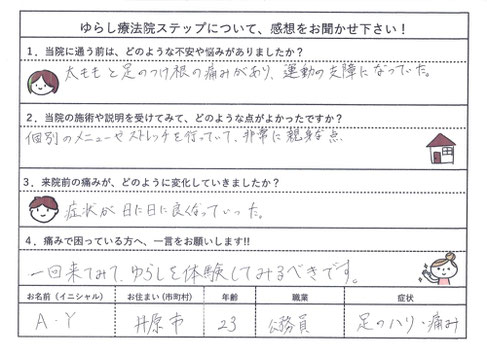 ゆらし療法院ステップについて、感想をお聞かせ下さい！
1．当院に通う前は、どのような不安や悩みがありましたか？
太ももと足のつけ根の痛みがあり、運動の支障になっていた。
2．当院の施術や説明を受けてみて、どのような点がよかったですか？
個別のメニューやストレッチを行っていて、非常に親身な点
3．来院前の痛みが、どのように変化していきましたか？
症状が日に日に良くなっていった。
4．痛みで困っている方へ、一言をお願いします!!
一回来てみて、ゆらしを体験してみるべきです。
お名前（イニシャル） お住まい（市町村） 年齢 職業 症状
A.Y 井原市 23 公務員 足のハリ・痛み